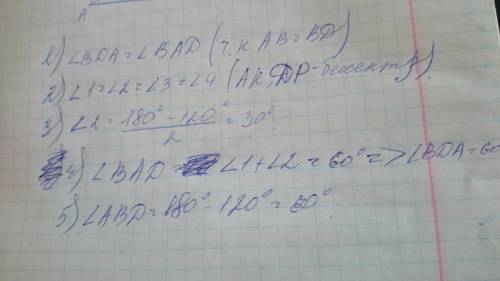 A
1) ∠BDA = ∠BAD (т.к AB = BD)
2) ∠1 = ∠2 = ∠3 = ∠4 (AK, DP-бесект)
3) ∠2 = (180° - 120°)/2 = 30°
4) ∠BAD = ∠1 + ∠2 = 60° => ∠BDA = 60
5) ∠ABD = 180° - 120° = 60°